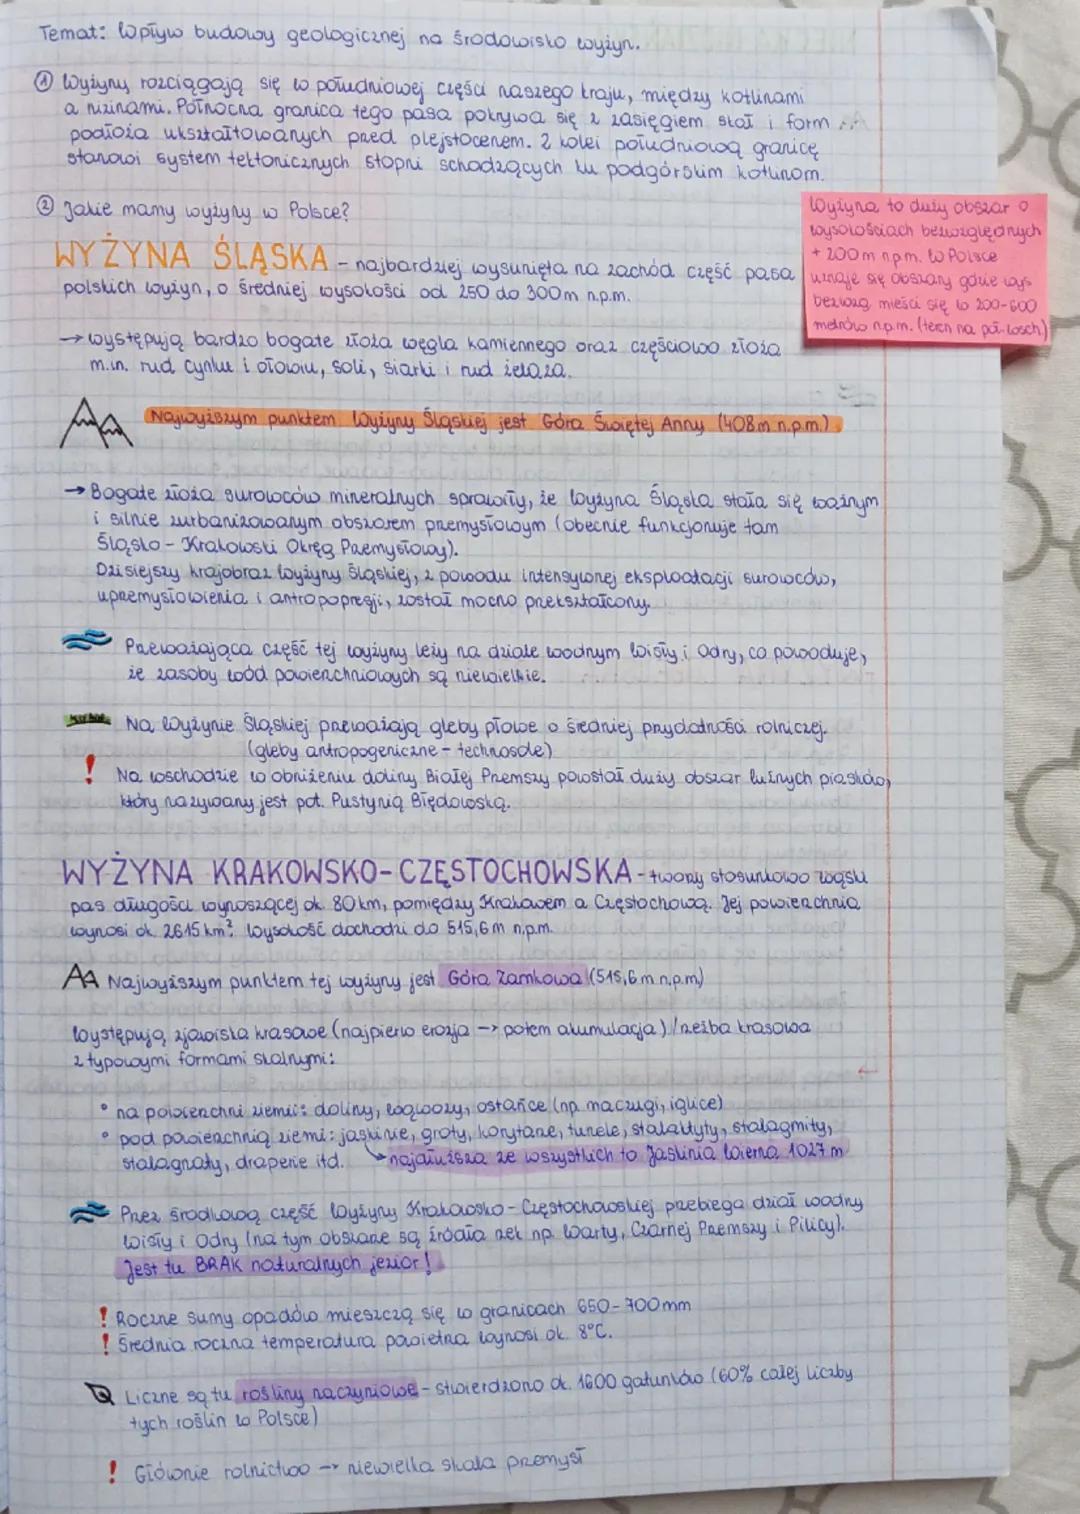 Temat: Wpływ budowy geologicznej na środowisko wyżyn.
① Wyżyny rozciągają się w południowej części naszego kraju, między kotlinami
a nizinami. Północna granica tego pasa pokrywa się z zasięgiem skał i form
podłoża ukształtowanych przed plejstocenem. Z kolei południową granicę
stanowi system tektonicznych stopni schodzących ku podgórskim kotlinom.
② Jakie mamy wyżyny w Polsce?
Wyżyna to duży obszar o
wysokościach bezwzględnych
+ 200m n.p.m. W Polsce
uznaje się obszary gdzie wys
bezwzg. mieści się w 200-600
metrów n.p.m. (teren na pd-wsch)
WYŻYNA ŚLĄSKA - najbardziej wysunięta na zachód część pasa
polskich wyżyn, o średniej wysokości od 250 do 300m n.p.m.
→ występują bardzo bogate złoża węgla kamiennego oraz częściowo złoża
m.in. rud cynku i ołowiu, soli, siarki i rud żelaza.
Najwyższym punktem Wyżyny Śląskiej jest Góra Świętej Anny (408m n.p.m.).
→ Bogate złoża surowców mineralnych sprawiły, że Wyżyna Śląska stała się ważnym
i silnie zurbanizowanym obszarem przemysłowym (obecnie funkcjonuje tam
Śląsko - Krakowski Okręg Przemysłowy).
Dzisiejszy krajobraz Wyżyny Śląskiej, z powodu intensywnej eksploatacji surowców,
uprzemysłowienia i antropopresji, został mocno przekształcony.
Przeważająca część tej wyżyny leży na dziale wodnym Wisły i Odry, co powoduje,
że zasoby wód powierzchniowych są niewielkie.
Na Wyżynie Śląskiej przeważają gleby płowe o średniej przydatności rolniczej.
(gleby antropogeniczne - technosole)
! Na wschodzie w obniżeniu doliny Białej Przemszy powstał duży obszar luźnych piasków,
który nazywany jest pot. Pustynią Błędowską.
WYŻYNA KRAKOWSKO-CZĘSTOCHOWSKA - tworzy stosunkowo wąski
pas długości wynoszącej ok. 80km, pomiędzy Krakowem a Częstochową. Jej powierzchnia
wynosi ok. 2615 km². Wysokość dochodzi do 515,6m n.p.m.
Najwyższym punktem tej wyżyny jest Góra Zamkowa (515,6m n.p.m)
Występują zjawiska krasowe (najpierw erozja → potem akumulacja) / rzeźba krasowa
z typowymi formami skalnymi:
° na powierzchni ziemii: doliny, wąwozy, ostańce (np. maczugi, iglice)
° pod powierzchnią ziemi: jaskinie, groty, korytarze, tunele, stalaktyty, stalagmity,
stalagnaty, draperie itd. → najdłuższa ze wszystkich to Jaskinia Wierna 1027 m
Przez środkową część Wyżyny Krakowsko - Częstochowskiej przebiega dział wodny
Wisły i Odry (na tym obszarze są źródła rzek np. Warty, Czarnej Przemszy i Pilicy).
Jest tu BRAK naturalnych jezior!
! Roczne sumy opadów mieszczą się w granicach 650-700mm
! Średnia roczna temperatura powietrza wynosi ok. 8°C.
Liczne są tu rośliny naczyniowe - stwierdzono ok. 1600 gatunków (60% całej liczby
tych roślin w Polsce)
! Głównie rolnictwo → niewielka skala przemysł